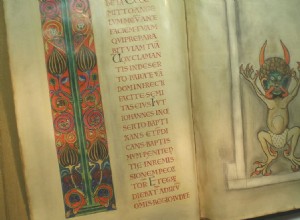 MITTO ANGE
FACIE TVAM
QVI PREPARA
BIT VIAM TVA
VOX CLAMAN
TIS IN DESER
TO PARATE VIA
DOMINI RECT
FACITE SEMI
TAS EIVS
IOHANNES IN
SERTO BAPTI
ZANS ET PDI
CANS BAPTIS
MVM PENITEN
TIE IN REMIS
SIONEM PECCA
TOR ET EGRE
DIEBAT AD
OMIS REGIO IVDEE